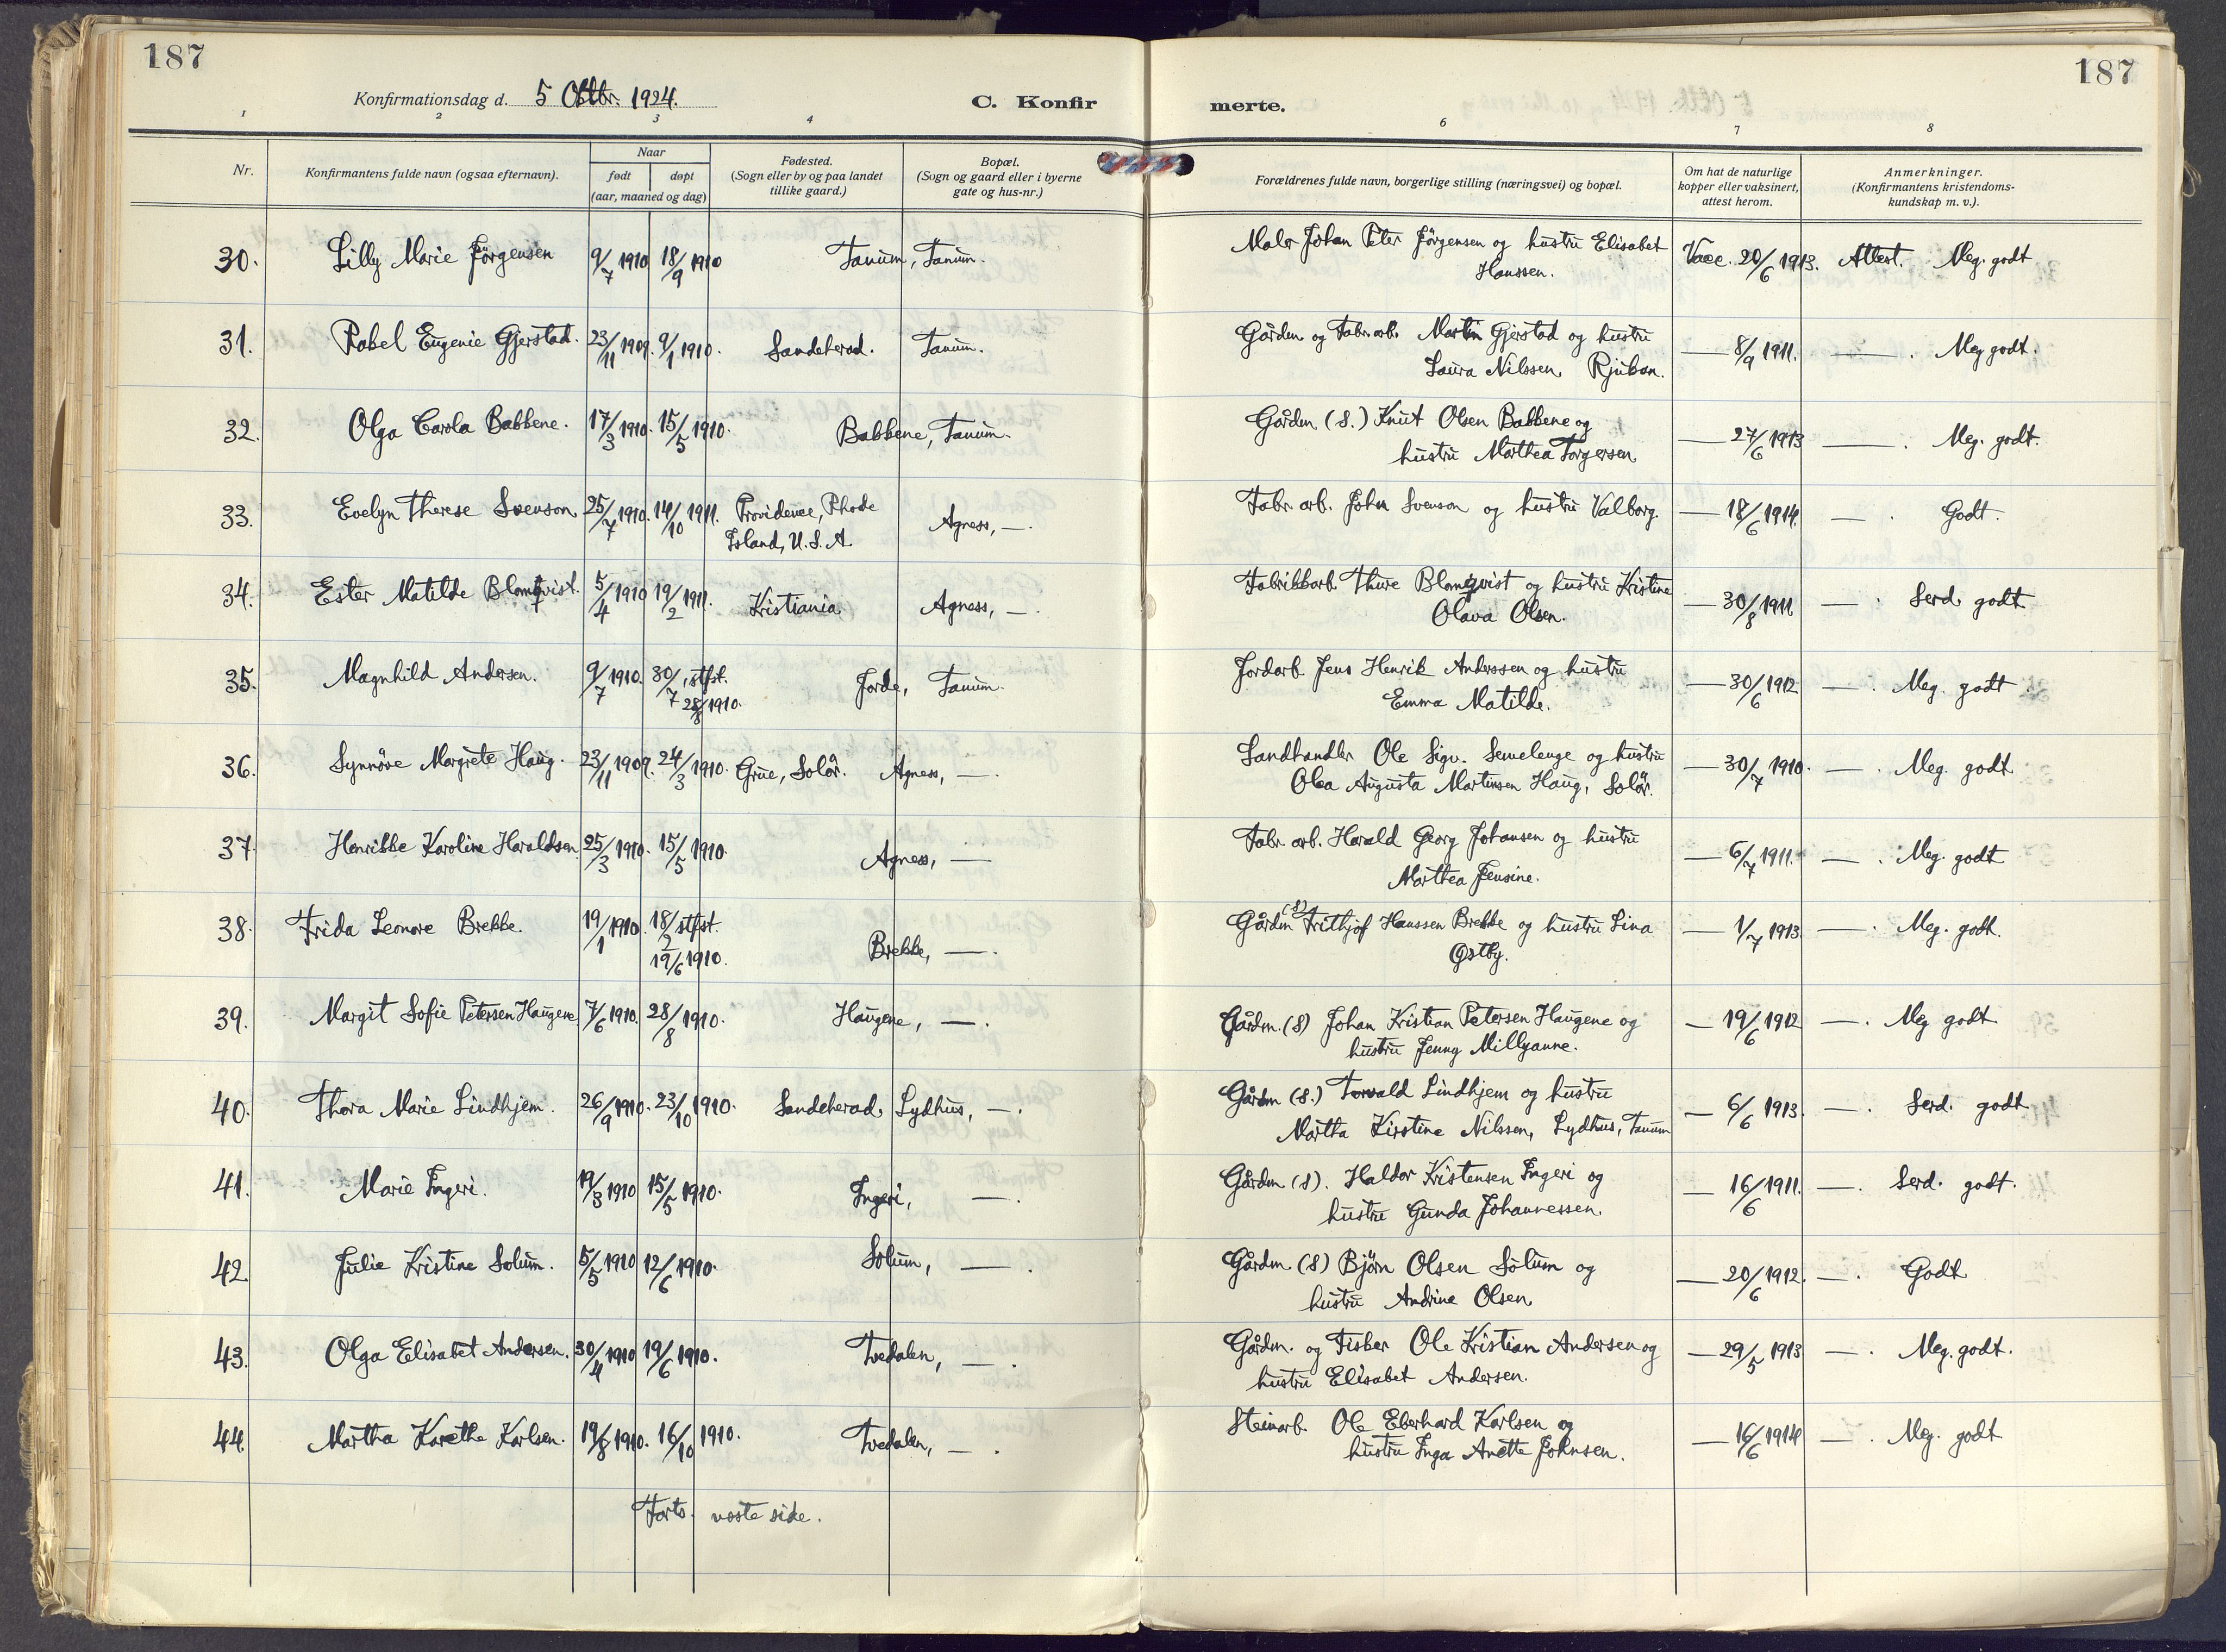 187
187
Konfirmationsdag d. 5 Oktbr. 1924.
C. Konfirmerte.
1 2 3 4 6 7 8
Nr.
Konfirmantens fulde navn (ogsaa efternavn).
Naar
født døpt
(aar, maaned og dag)
Fødested.
(Sogn eller by og paa landet
tillike gaard.)
Bopæl.
(Sogn og gaard eller i byerne
gate og hus-nr.)
Forældrenes fulde navn, borgerlige stilling (næringsvei) og bopæl.
Om hat de naturlige
kopper eller vaksinert,
attest herom.
Anmerkninger.
(Konfirmantens kristendoms-
kundskap m. v.).
30. Lilly Marie Jörgensen 9/7 1910 18/9 1910 Tanum, Tanum. Maler Johan Peter Jörgensen og hustru Elisabet Vacc. 20/6 1913. Attest. Meg. godt
Hanssen.
31. Rakel Eugenie Gjerstad. 23/11 1909. 9/1 1910. Sandeherad. Tanum. Gårdm. og Fabr. arb. Martin Gjerstad og hustru — 8/9 1911. — . Meg godt.
Laura Nilssen, Rjukan.
32. Olga Carola Bakkene. 17/3 1910. 15/5 1910. Bakkene, Tanum. Gårdm. (S.) Knut Olsen Bakkene og — 27/6 1913 — . Meg. godt.
hustru Marthea Torgersen.
33. Evelyn Therese Svenson 25/7 1910. 14/10 1911. Providence, Rhode Agness, —. Fabr. arb. John Svenson og hustru Valborg. — 18/6 1914. — . Godt.
Island, U. S. A.
34. Ester Matilde Blomqvist. 5/4 1910 19/2 1911. Kristiania Agness, —. Fabrikkarb. Thure Blomqvist og hustru Kristine — 30/8 1911. — . Serd. godt
Olava Olsen.
35. Magnhild Andersen. 9/7 1910. 30/7, stfst. Jorde, Tanum. Jordarb. Jens Henrik Anderssen og hustru — 30/6 1912 — . Meg. godt.
28/8 1910. Emma Matilde.
36. Synnöve Margrete Haug. 23/11 1909. 24/3 1910. Grue, Solör. Agness, —. Landhandler Ole Sigv. Semelenge og hustru — 30/7 1910. — . Meg. godt
Olea Augusta Martinsen Haug, Solör.
37. Henrikke Karoline Haraldsen. 25/3 1910. 15/5 1910. Agness, — Fabr. arb. Harald Georg Johansen og hustru — 6/7 1911. — . Meg. godt
Marthea Jensine.
38. Frida Leonore Brekke. 19/1 1910. 18/2 stfst. Brekke, —. Gårdm (S) Frithjof Hanssen Brekke og hustru Lina — 1/7 1913. — . Meg. godt.
19/6 1910. Østby.
39. Margit Sofie Petersen Haugene. 7/6 1910. 28/8 1910. Haugene, —. Gårdm. (S) Johan Kristian Petersen Haugene og — 19/6 1912 —. Meg godt
hustru Jenny Millyanne.
40. Thora Marie Lindhjem. 26/9 1910. 23/10 1910. Sandeherad. Lydhus, —. Gårdm (S.) Torvald Lindhjem og hustru — 6/6 1913. —. Serd. godt
Martha Kirstine Nilssen, Lydhus, Tanum
41. Marie Ingeri. 19/3 1910 15/5 1910. Ingeri, —. Gårdm (S). Haldor Kristensen Ingeri og — 16/6 1911. —. Serd. godt.
hustru Gunda Johannessen.
42. Julie Kristine Solum. 5/5 1910 12/6 1910. Solum, —. Gårdm (S) Björn Olsen Solum og — 20/6 1912. —. Godt
hustru Andrine Olsen
43. Olga Elisabet Andersen. 30/4 1910 19/6 1910. Tvedalen, —. Gårdm. og Fisker Ole Kristian Andersen og — 29/5 1913 —. Meg. godt.
hustru Elisabet Andersen.
44. Martha Karethe Karlsen. 19/8 1910. 16/10 1910. Tvedalen, —. Steinarb. Ole Eberhard Karlsen og — 16/6 1914 —. Meg. godt
hustru Inga Anette Johnsen.
Forts. næste side.